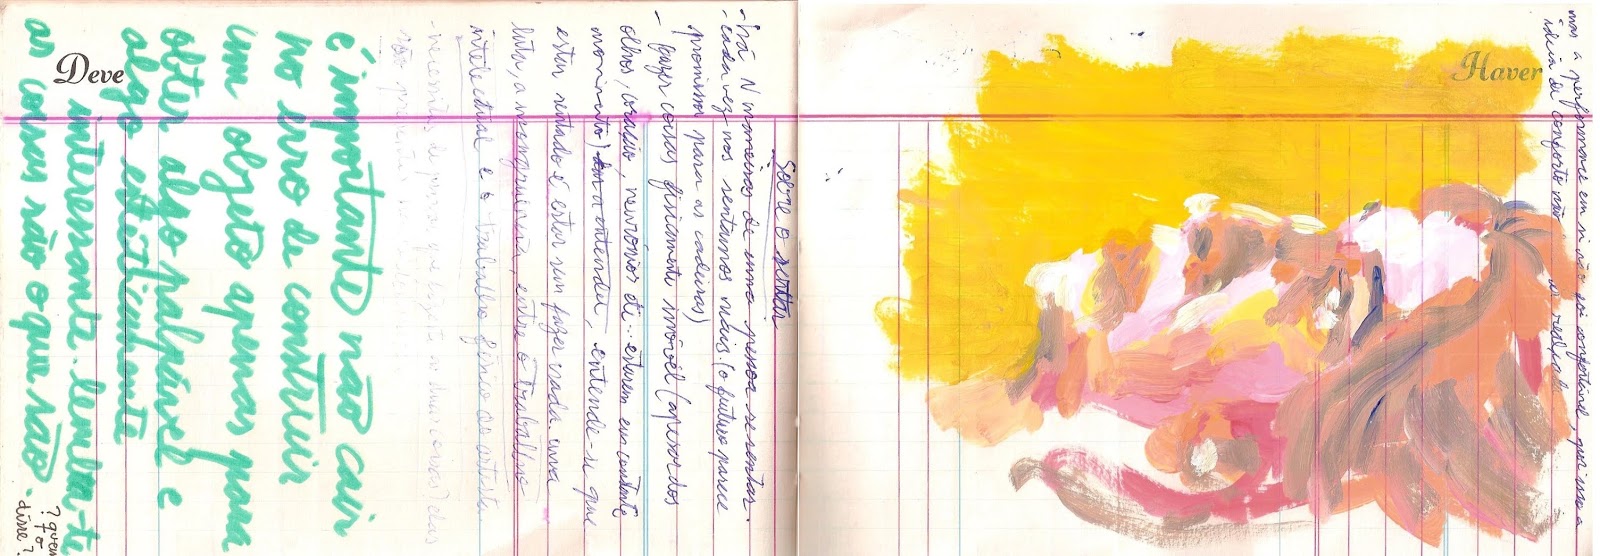 Deve
Haver
Sobre o sentar
- Há N maneiras de uma pessoa se sentar.
- cada vez nos sentamos mais. (o futuro parece
promissor para as cadeiras)
- fazer coisas fisicamente imóvel (apesar dos
olhos, coração, neurónios etc... estarem em constante
movimento) a entender, entende-se que
estar sentado é estar sem fazer nada. uma
luta, a incongruência, entre o trabalho
intelectual e o trabalho físico do artista
é importante não cair
no erro de construir
um objeto apenas para
obter algo palpável e
algo esteticamente
interessante. lembra-te
as coisas não o que são.
?quem
to
disse?
mas a performance em si não confortável, por isso a
ideia de conforto não é